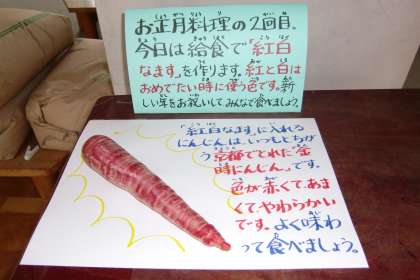 お正月料理の2回目。
今日は給食で「紅白
なます」を作ります。紅と白は
おめでたい時に使う色です。新
しい年をお祝いしてみんなで食べましょう。
「紅白なます」に入れる
にんじんは、いつもとちが
う京都でとれた「金
時にんじん」です。
色が赤くて、あま
くて、やわらかい
です。よく味わ
って食べましょう。